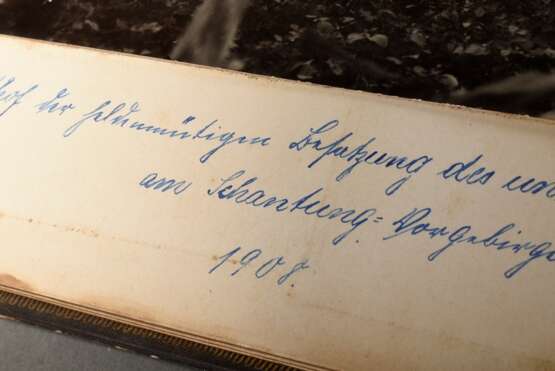 der heldenmütigen Besatzung des
am Schantung=Vorgebirge
1908.